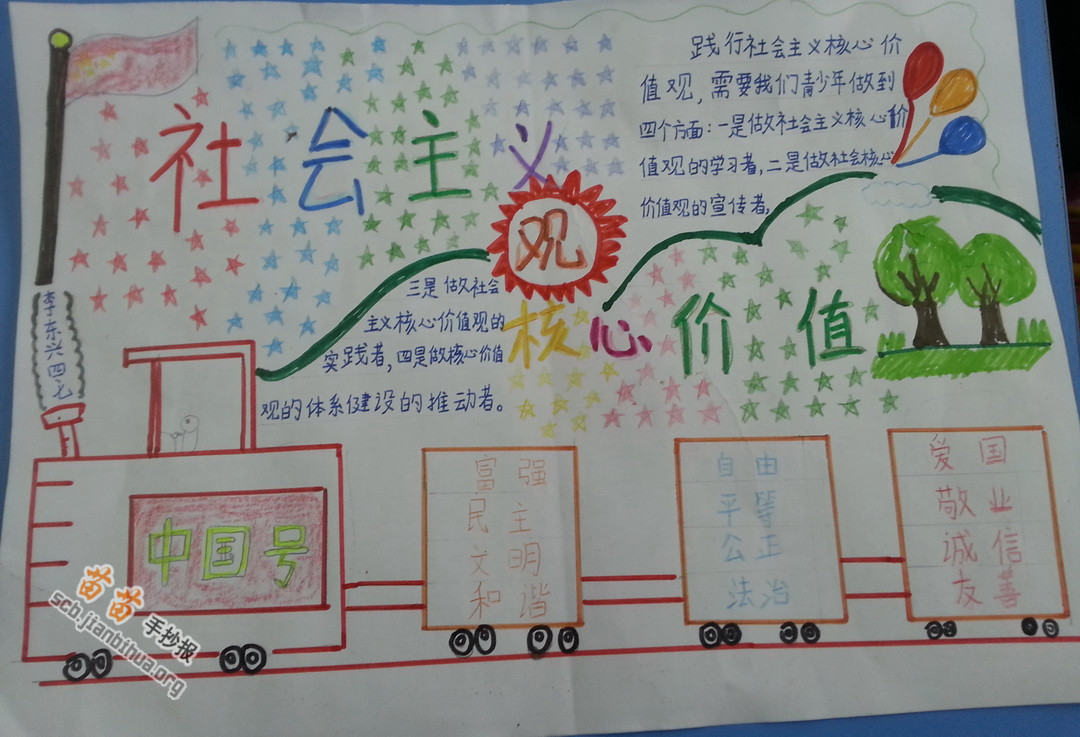 社会主义
观
核心价值
践行社会主义核心价
值观，需要我们青少年做到
四个方面：一是做社会主义核心价
值观的学习者，二是做社会核心
价值观的宣传者，
三是做社会
主义核心价值观的
实践者，四是做核心价值
观的体系健设的推动者。
李东兴四
中国号
富强
民主
文明
和谐
自由
平等
公正
法治
爱国
敬业
诚信
友善
苗苗手抄报
scb.jianbihua.org